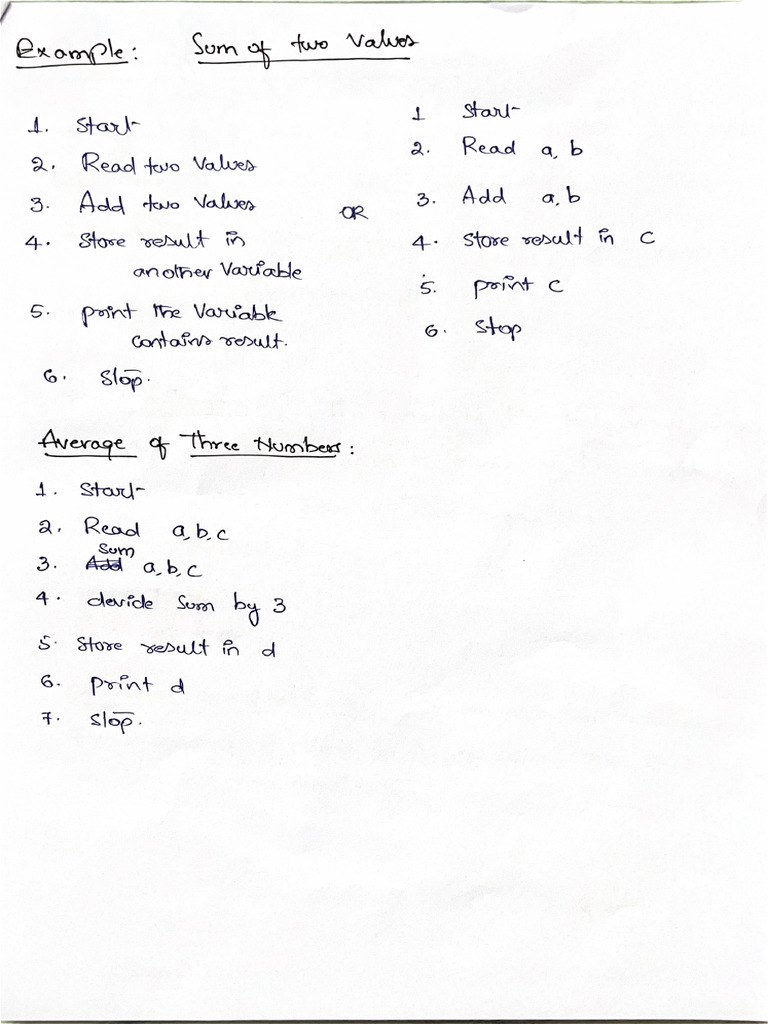 Example: Sum of two Values
1. Start
2. Read two Values
3. Add two Values
4. Store result in
another Variable
5. print the Variable
contains result.
6. Stop.
OR
1 Start
2. Read a, b
3. Add a, b
4. Store result in C
5. print C
6. Stop
Average of Three Numbers:
1. Start
2. Read a, b, c
3. Sum a, b, c
4. devide Sum by 3
5. Store result in d
6. print d
7. Stop.